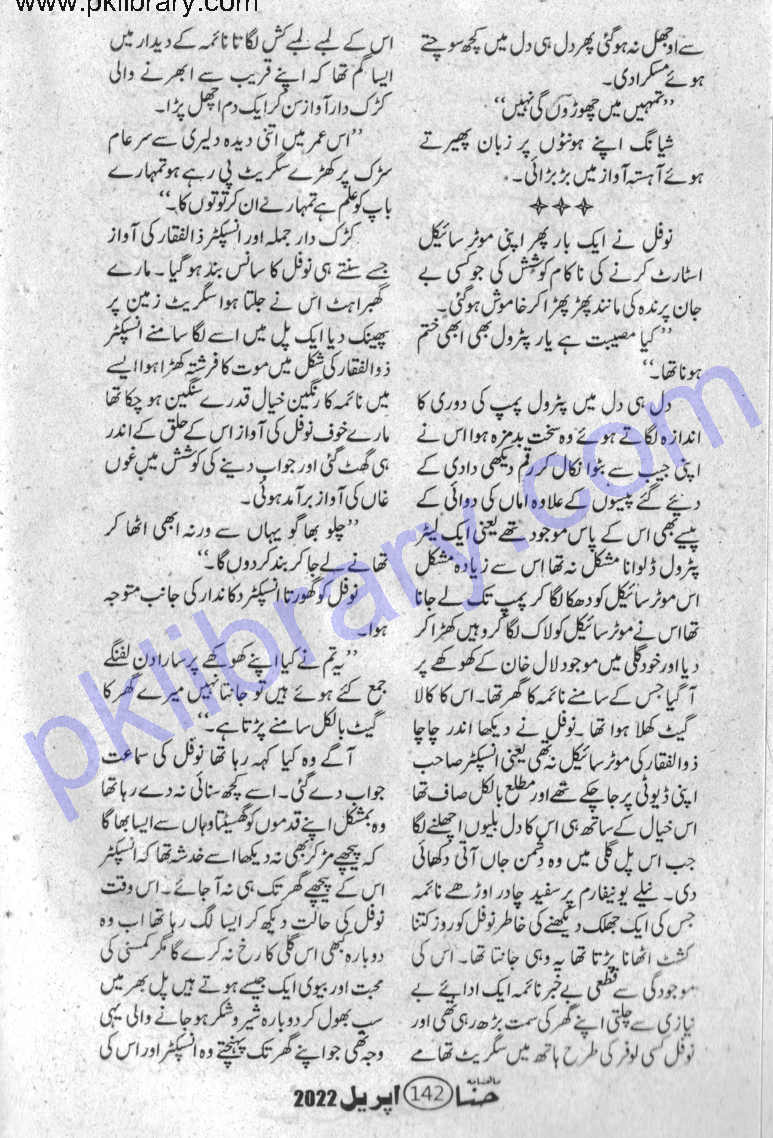 www.pklibrary.com
سے اوجھل نہ ہو گئی پھر دل ہی دل میں کچھ سوچتے
ہوئے مسکرا دی۔
”تمہیں میں چھوڑوں گی نہیں“
شیانگ اپنے ہونٹوں پر زبان پھیرتے
ہوئے آہستہ آواز میں بڑبڑائی۔
✧✧✧
نوفل نے ایک بار پھر اپنی موٹر سائیکل
اسٹارٹ کرنے کی ناکام کوشش کی جو کسی بے
جان پرندہ کی مانند پھڑ پھڑا کر خاموش ہو گئی۔
”کیا مصیبت ہے یار پٹرول بھی ابھی ختم
ہونا تھا۔“
دل ہی دل میں پٹرول پمپ کی دوری کا
اندازہ لگاتے ہوئے وہ سخت بدمزہ ہوا اس نے
اپنی جیب سے بٹوا نکال کر رقم دیکھی دادی کے
دیئے گئے پیسوں کے علاوہ اماں کی دوائی کے
پیسے بھی اس کے پاس موجود تھے یعنی ایک لیٹر
پٹرول ڈلوانا مشکل نہ تھا اس سے زیادہ مشکل
اس موٹر سائیکل کو دھکا لگا کر پمپ تک لے جانا
تھا اس نے موٹر سائیکل کو لاک لگا کر وہیں کھڑا کر
دیا اور خود گلی میں موجود لال خان کے کھوکھے پر
آ گیا جس کے سامنے نائمہ کا گھر تھا۔ اس کا کالا
گیٹ کھلا ہوا تھا۔ نوفل نے دیکھا اندر چاچا
ذوالفقار کی موٹر سائیکل نہ تھی یعنی انسپکٹر صاحب
اپنی ڈیوٹی پر جا چکے تھے اور مطلع بالکل صاف تھا
اس خیال کے ساتھ ہی اس کا دل بلیوں اچھلنے لگا
جب اس پل گلی میں وہ دشمن جاں آتی دکھائی
دی۔ نیلے یونیفارم پر سفید چادر اوڑھے نائمہ
جس کی ایک جھلک دیکھنے کی خاطر نوفل کو روز کتنا
کشٹ اٹھانا پڑتا تھا یہ وہی جانتا تھا۔ اس کی
موجودگی سے قطعی بے خبر نائمہ ایک ادائے بے
نیازی سے چلتی اپنے گھر کی سمت بڑھ رہی تھی اور
نوفل کسی لوفر کی طرح ہاتھ میں سگریٹ تھامے
اس کے لمبے لمبے کش لگاتا نائمہ کے دیدار میں
ایسا گم تھا کہ اپنے قریب سے ابھرنے والی
کڑک دار آواز سن کر ایک دم اچھل پڑا۔
”اس عمر میں اتنی دیدہ دلیری سے سر عام
سڑک پر کھڑے سگریٹ پی رہے ہو تمہارے
باپ کو علم ہے تمہارے ان کرتوتوں کا۔“
کڑک دار جملہ اور انسپکٹر ذالفقار کی آواز
جسے سنتے ہی نوفل کا سانس بند ہو گیا۔ مارے
گھبراہٹ اس نے جلتا ہوا سگریٹ زمین پر
پھینک دیا ایک پل میں اسے لگا سامنے انسپکٹر
ذوالفقار کی شکل میں موت کا فرشتہ کھڑا ہوا ایسے
میں نائمہ کا رنگین خیال قدرے سنگین ہو چکا تھا
مارے خوف نوفل کی آواز اس کے حلق کے اندر
ہی گھٹ گئی اور جواب دینے کی کوشش میں غوں
غاں کی آواز برآمد ہوئی۔
”چلو بھاگو یہاں سے ورنہ ابھی اٹھا کر
تھانے لے جا کر بند کر دوں گا۔“
نوفل کو گھورتا انسپکٹر دکاندار کی جانب متوجہ
ہوا۔
”یہ تم نے کیا اپنے کھوکھے پر سارا دن لفنگے
جمع کئے ہوئے ہیں تو جانتا نہیں میرے گھر کا
گیٹ بالکل سامنے پڑتا ہے۔“
آگے وہ کیا کہہ رہا تھا نوفل کی سماعت
جواب دے گئی۔ اسے کچھ سنائی نہ دے رہا تھا
وہ بمشکل اپنے قدموں کو گھسیٹتا وہاں سے ایسا بھاگا
کہ پیچھے مڑ کر بھی نہ دیکھا اسے خدشہ تھا کہ انسپکٹر
اس کے پیچھے گھر تک ہی نہ آ جائے۔ اس وقت
نوفل کی حالت دیکھ کر ایسا لگ رہا تھا اب وہ
دوبارہ کبھی اس گلی کا رخ نہ کرے گا مگر کمسنی کی
محبت اور بیوی ایک جیسے ہوتے ہیں پل بھر میں
سب بھول کر دوبارہ شیر و شکر ہو جانے والی یہی
وجہ تھی جو اپنے گھر تک پہنچتے وہ انسپکٹر اور اس کی
ماہنامہ حنا 142 اپریل 2022
pklibrary.com